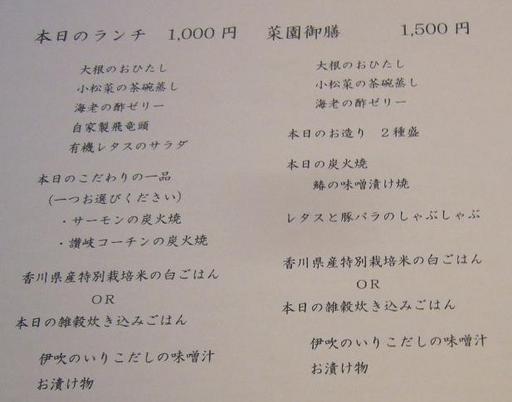 本日のランチ 1,000 円
大根のおひたし
小松菜の茶碗蒸し
海老の酢ゼリー
自家製飛竜頭
有機レタスのサラダ
本日のこだわりの一品
(一つお選びください)
・サーモンの炭火焼
・讃岐コーチンの炭火焼
香川県産特別栽培米の白ごはん
OR
本日の雑穀炊き込みごはん
伊吹のいりこだしの味噌汁
お漬け物
菜園御膳 1,500 円
大根のおひたし
小松菜の茶碗蒸し
海老の酢ゼリー
本日のお造り 2種盛
本日の炭火焼
鰆の味噌漬け焼
レタスと豚バラのしゃぶしゃぶ
香川県産特別栽培米の白ごはん
OR
本日の雑穀炊き込みごはん
伊吹のいりこだしの味噌汁
お漬け物